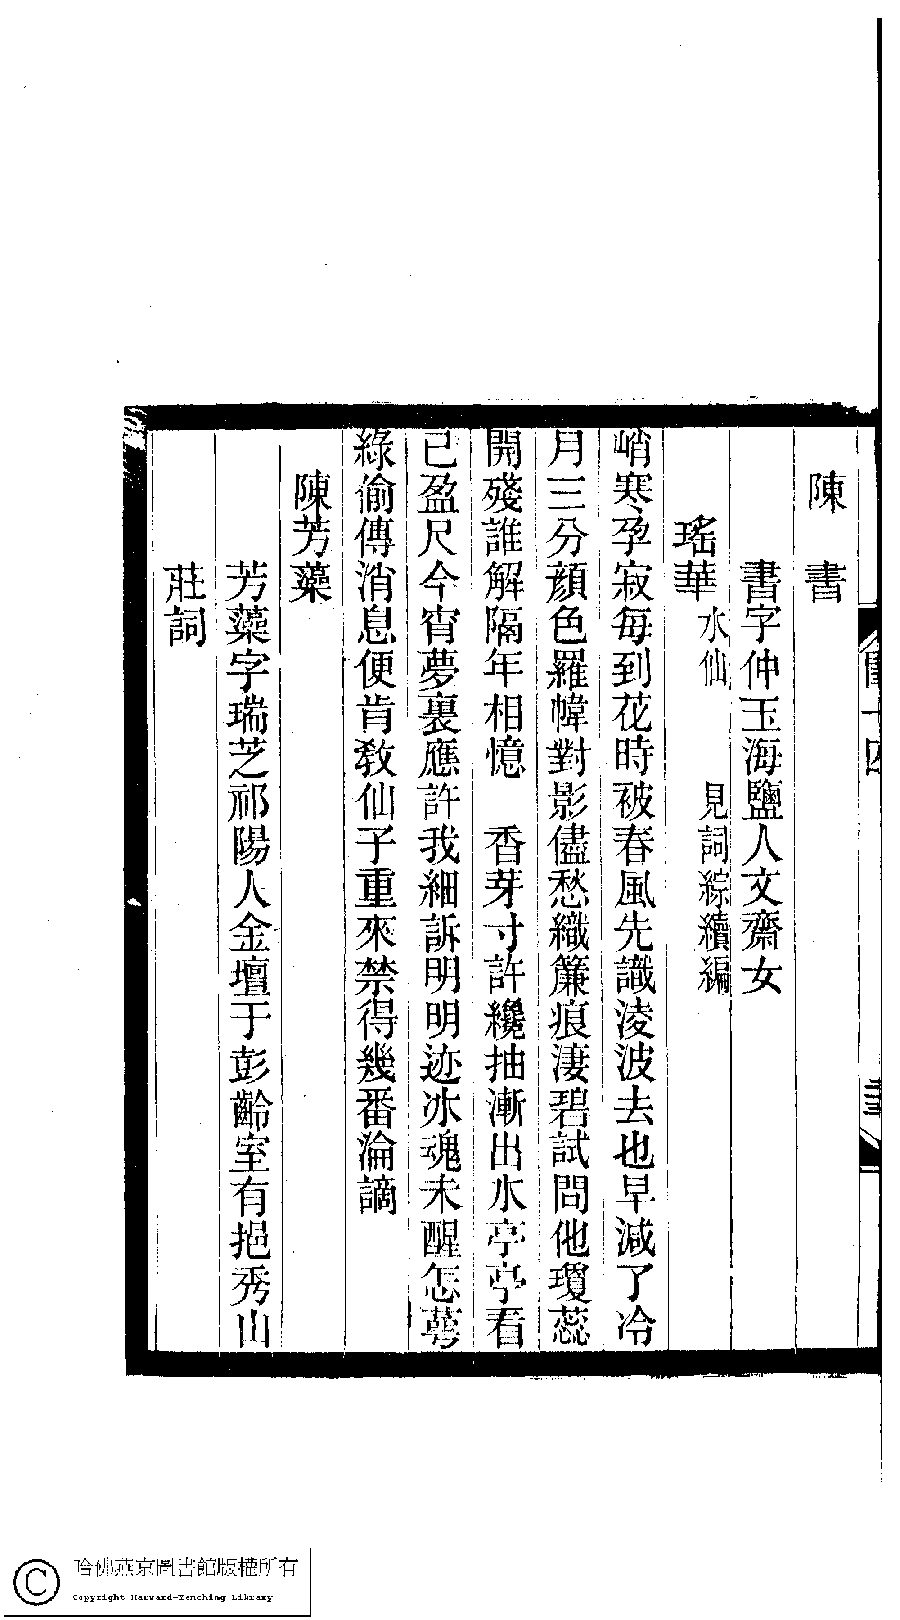 陳　書
書字仲玉海鹽人文齋女
瑤華 水仙　見詞綜續編
峭寒孕寂每到花時被春風先識淩波去也早減了冷
月三分顔色羅幃對影儘愁織簾痕淒碧試問他瓊蕊
開殘誰解隔年相憶　香芽寸許纔抽漸出水亭亭看
已盈尺今宵夢裏應許我細訴明明迹冰魂未醒怎萼
綠偷傳消息便肯敎仙子重來禁得幾番淪謫
陳芳藻
芳藻字瑞芝祁陽人金壇于彭齡室有挹秀山
莊詞
哈佛燕京圖書館版權所有
Copyright Harvard-Yenching Library